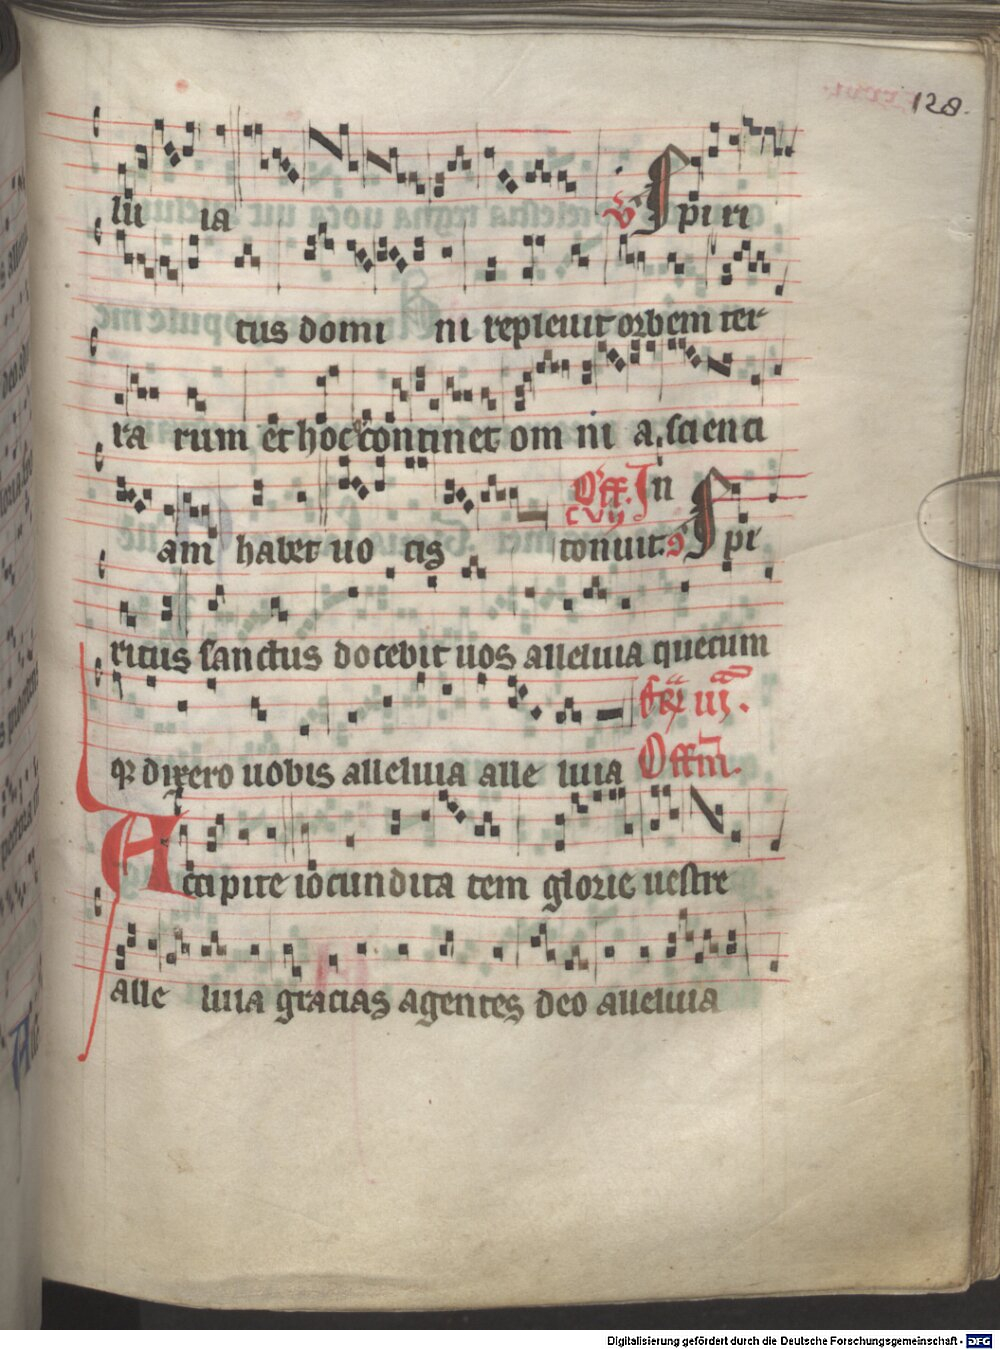 128.
lu ia ℣ Spi ri
tus domi ni repleuit orbem ter
ra rum et hoc continet om ni a, scienci
am habet uo cis Off. In
cvij
tonuit. Spi
ritus sanctus docebit uos alleluia quecum
q dixero uobis alleluia alle luia Offm.
Accipite iocundita tem glorie uestre
alle luia gracias agentes deo alleluia
Digitalisierung gefördert durch die Deutsche Forschungsgemeinschaft - DFG